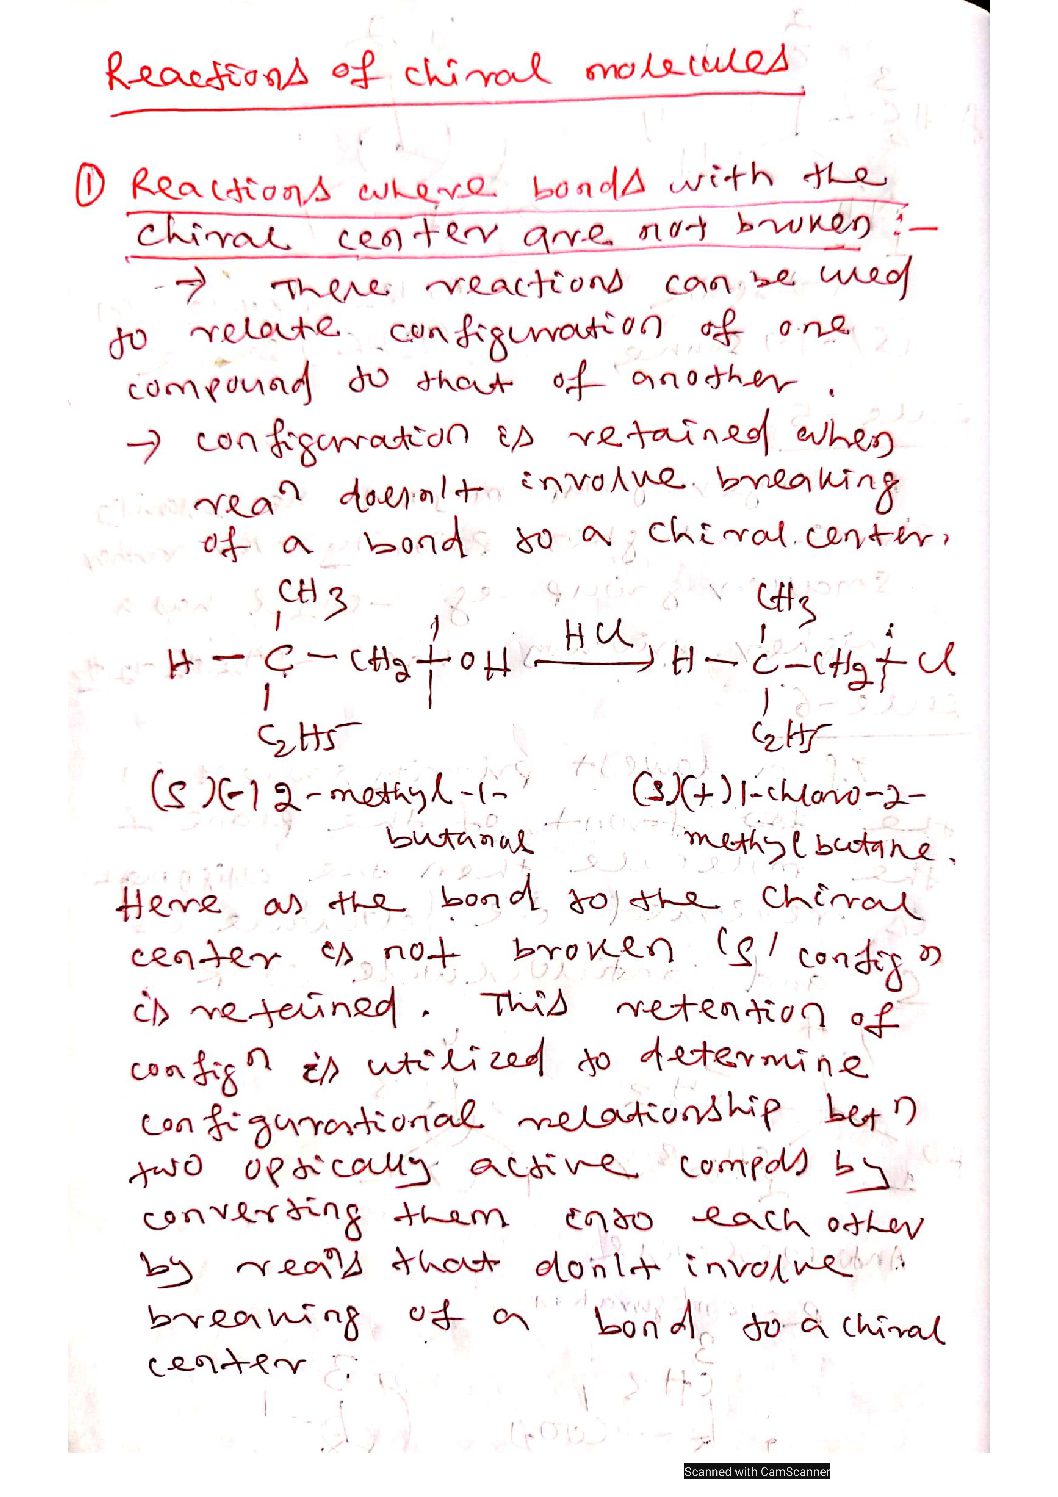 Reactions of chiral molecules
① Reactions where bonds with the
chiral center are not broken :-
→ These reactions can be used
to relate configuration of one
compound to that of another.
→ configuration is retained when
reaⁿ doesn't involve breaking
of a bond to a chiral center.
CH3 CH3
H - C - CH2 + OH HCl → H - C - CH2 + Cl
C2H5 C2H5
(S)(-) 2-methyl-1- (S)(+) 1-chloro-2-
butanol methylbutane.
Here as the bond to the chiral
center is not broken 'S' configⁿ
is retained. This retention of
configⁿ is utilized to determine
configurational relationship betⁿ
two optically active compds by
converting them into each other
by reaⁿs that don't involve
breaking of a bond to a chiral
center
Scanned with CamScanner